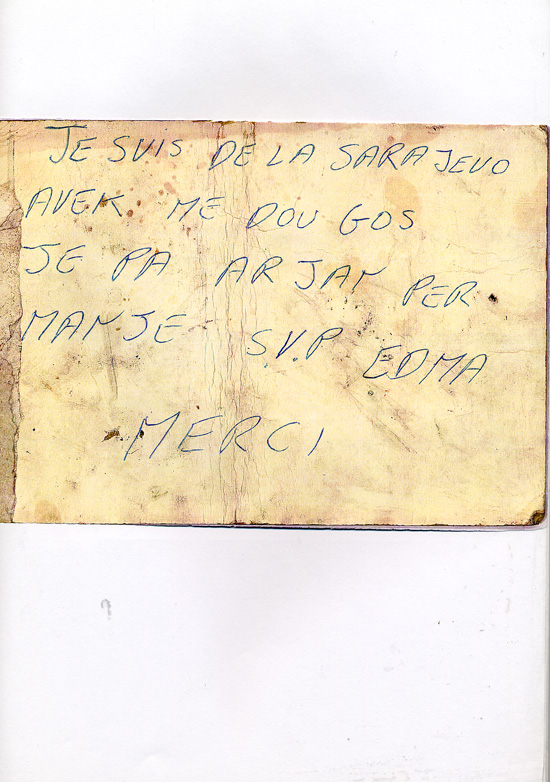 JE SUIS DE LA SARAJEVO
AVEK ME DOU GOS
JE PA ARJAN PER
MANJE S.V.P EDMA
MERCI